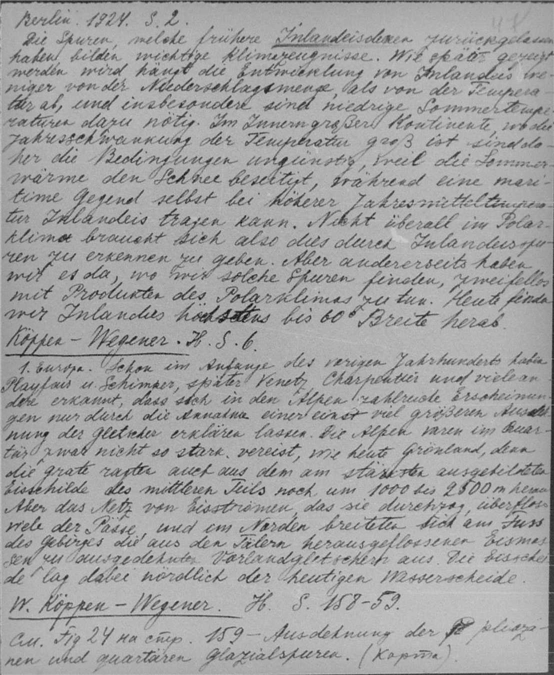 Berlin. 1924. S. 2.
Die Spuren, welche frühere Inlandeisdecken zurückgelassen
haben bilden wichtige Klimazeugnisse. Wie später gezeigt
werden wird hängt die Entwicklung von Inlandeis we-
niger von der Niederschlagsmenge als von der Tempera-
tur ab, und insbesondere sind niedrige Sommertempe-
raturen dazu nötig. Im Innern großer Kontinente, wo die
Jahresschwankung der Temperatur groß ist sind da-
her die Bedingungen ungünstig, weil die Sommer-
wärme den Schnee beseitigt, während eine mari-
time Gegend selbst bei höherer Jahresmitteltempera-
tur Inlandeis tragen kann. Nicht überall im Polar-
klima braucht sich also dies durch Inlandeisspu-
ren zu erkennen zu geben. Aber andererseits haben
wir es da, wo wir solche Spuren finden, zweifellos
mit Produkten des Polarklimas zu tun. Heute finden
wir Inlandeis höchstens bis 60° Breite herab.
Köppen – Wegener. H. S. 6.
1. Europa. Schon im Anfange des vorigen Jahrhunderts haben
Playfair u. Schimper, später Venetz, Charpentier und viele an-
dere erkannt, dass sich in den Alpen zahlreiche Erscheinun-
gen nur durch die Annahme einer einst viel größeren Ausdeh-
nung der Gletscher erklären lassen. Die Alpen waren im Quar-
tär zwar nicht so stark vereist, wie heute Grönland, denn
die Grate ragten auch aus dem am stärksten ausgebildeten
Eisschilde des mittleren Teils noch um 1000 bis 2500 m heraus
Aber das Netz von Eisströmen, das sie durchzog, überfloss
viele der Pässe, und im Norden breiteten sich am Fuss
des Gebirges die aus den Tälern herausgeflossenen Eismas-
sen zu ausgedehnten Vorlandgletschern aus. Die Eisschei-
de lag dabei nördlich der heutigen Wasserscheide.
W. Köppen – Wegener. H. S. 158-59.
См. Fig 24 на стр. 159 – Ausdehnung der plioza-
nen und quartären Glazialspuren. (Карта).